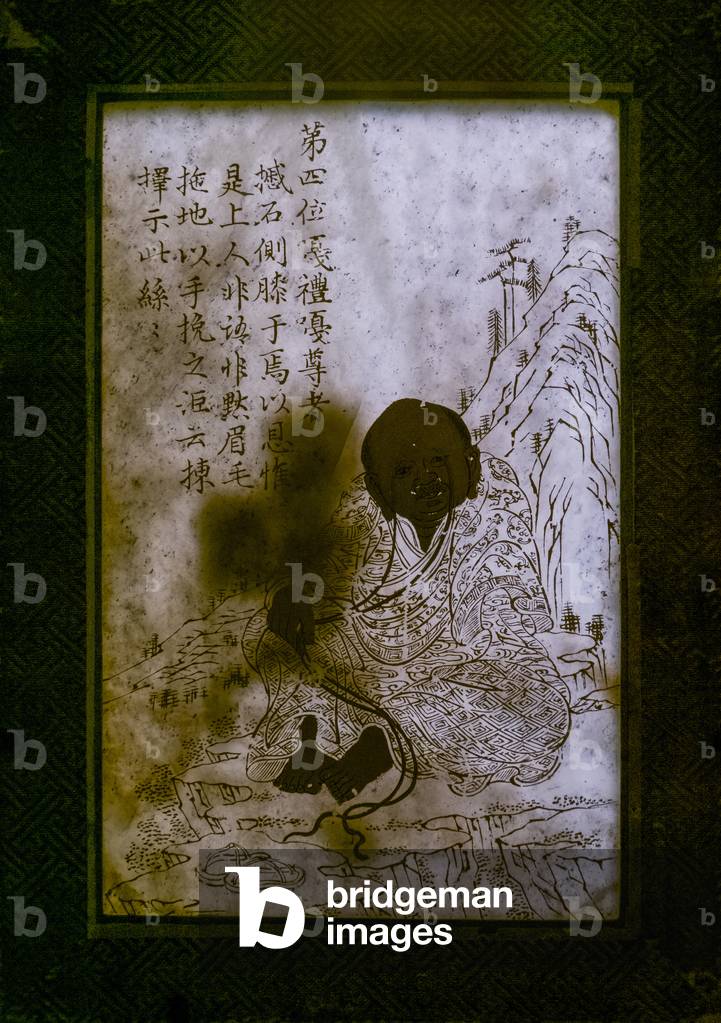 第四位戛禮戛尊者
撼石側膝于焉以息惟
是上人非語非默眉毛
拖地以手挽之詎云揀
擇示此絲〻
b bridgeman
images